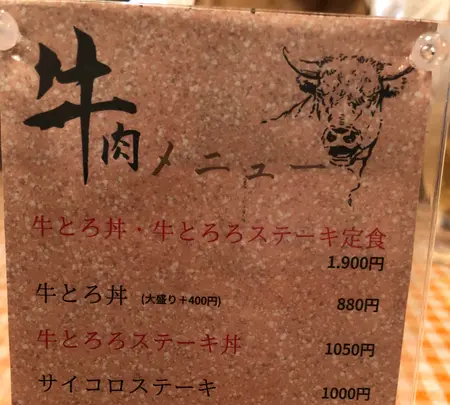 牛肉メニュー
牛とろ丼・牛とろろステーキ定食
1.900円
牛とろ丼 (大盛り+400円) 880円
牛とろろステーキ丼 1050円
サイコロステーキ 1000円